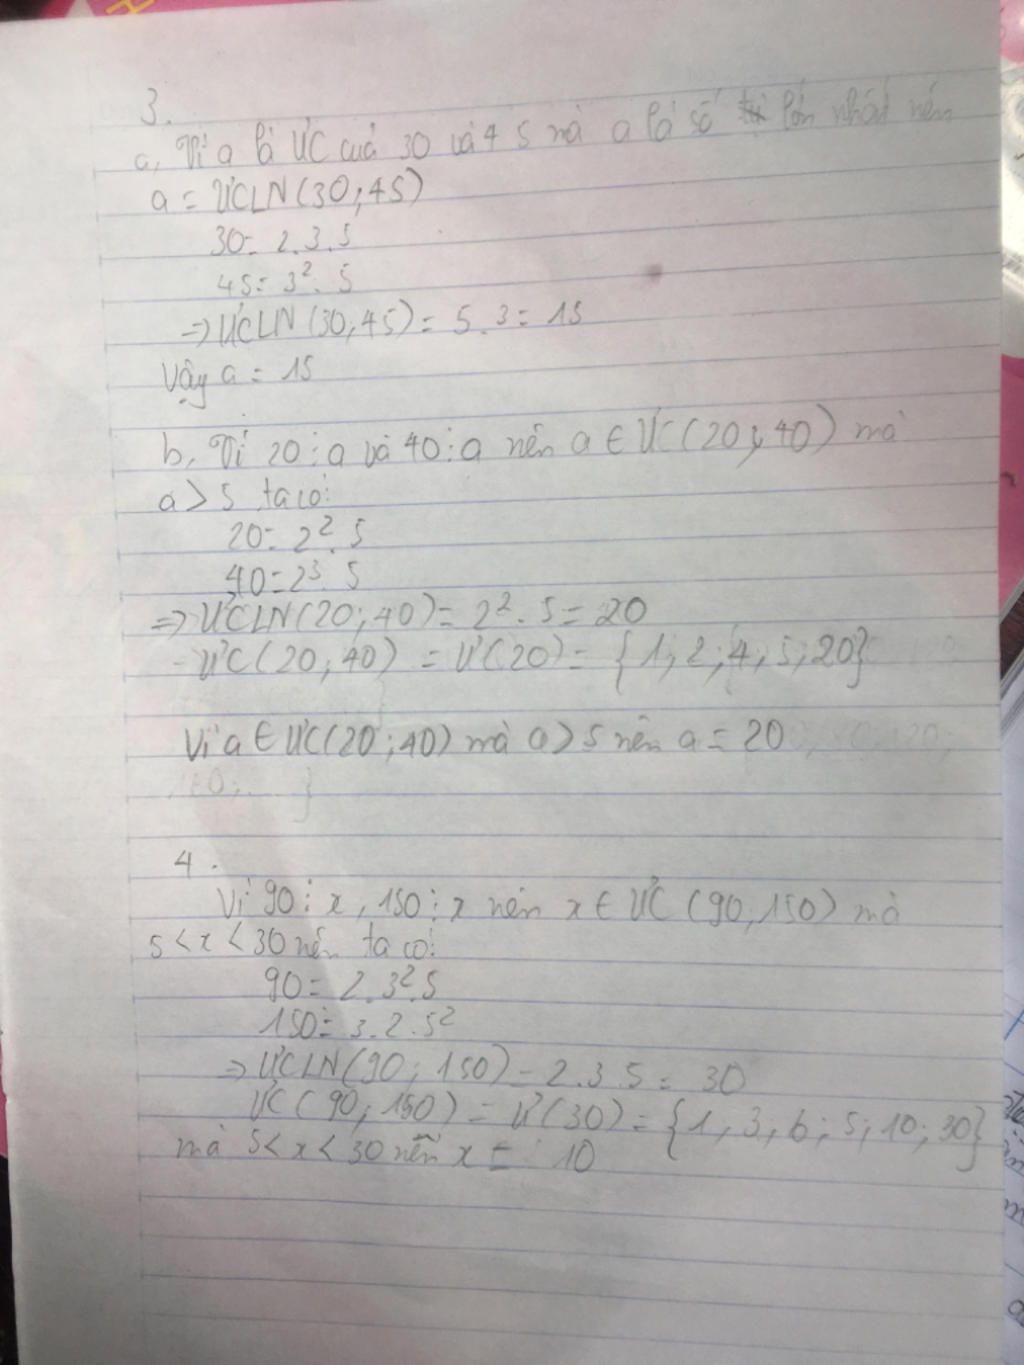 3.
a, Vì a là ƯC của 30 và 45 mà a là số lớn nhất nên
a = ƯCLN(30;45)
30 = 2.3.5
45 = 3². 5
=> ƯCLN(30;45) = 5.3 = 15
Vậy a = 15
b, Vì 20⋮a và 40⋮a nên a ∈ ƯC(20;40) mà
a > 5 ta có:
20 = 2². 5
40 = 2³. 5
=> ƯCLN(20;40) = 2². 5 = 20
- ƯC(20;40) = Ư(20) = {1; 2; 4; 5; 20}
Vì a ∈ ƯC(20;40) mà a > 5 nên a = 20
4.
Vì 90⋮x, 150⋮x nên x ∈ ƯC(90;150) mà
5 < x < 30 nên ta có:
90 = 2.3².5
150 = 3.2.5²
=> ƯCLN(90;150) = 2.3.5 = 30
ƯC(90;150) = Ư(30) = {1; 3; 6; 5; 10; 30}
mà 5 < x < 30 nên x = 10